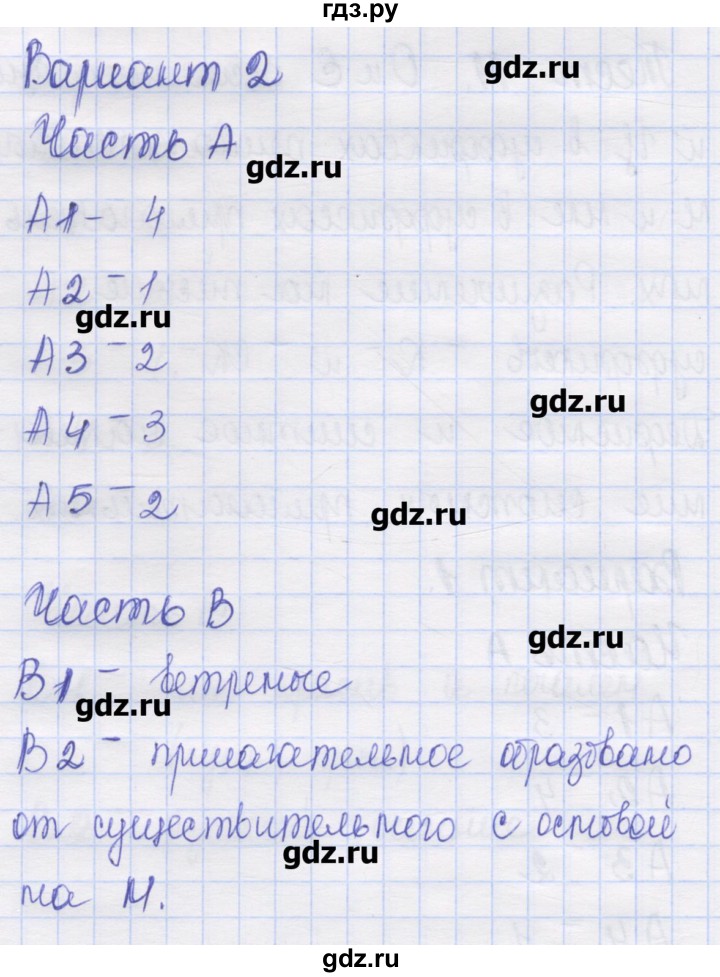 гдз.ру
Вариант 2
gdz.ru
Часть А
gdz.ru
А1 - 4
А2 - 1
gdz.ru
А3 - 2
gdz.ru
А4 - 3
А5 - 2
gdz.ru
Часть В
gdz.ru
В1 - ветреные
gdz.ru
В2 - прилагательное образовано
от существительного с основой
gdz.ru
на Н.
gdz.ru